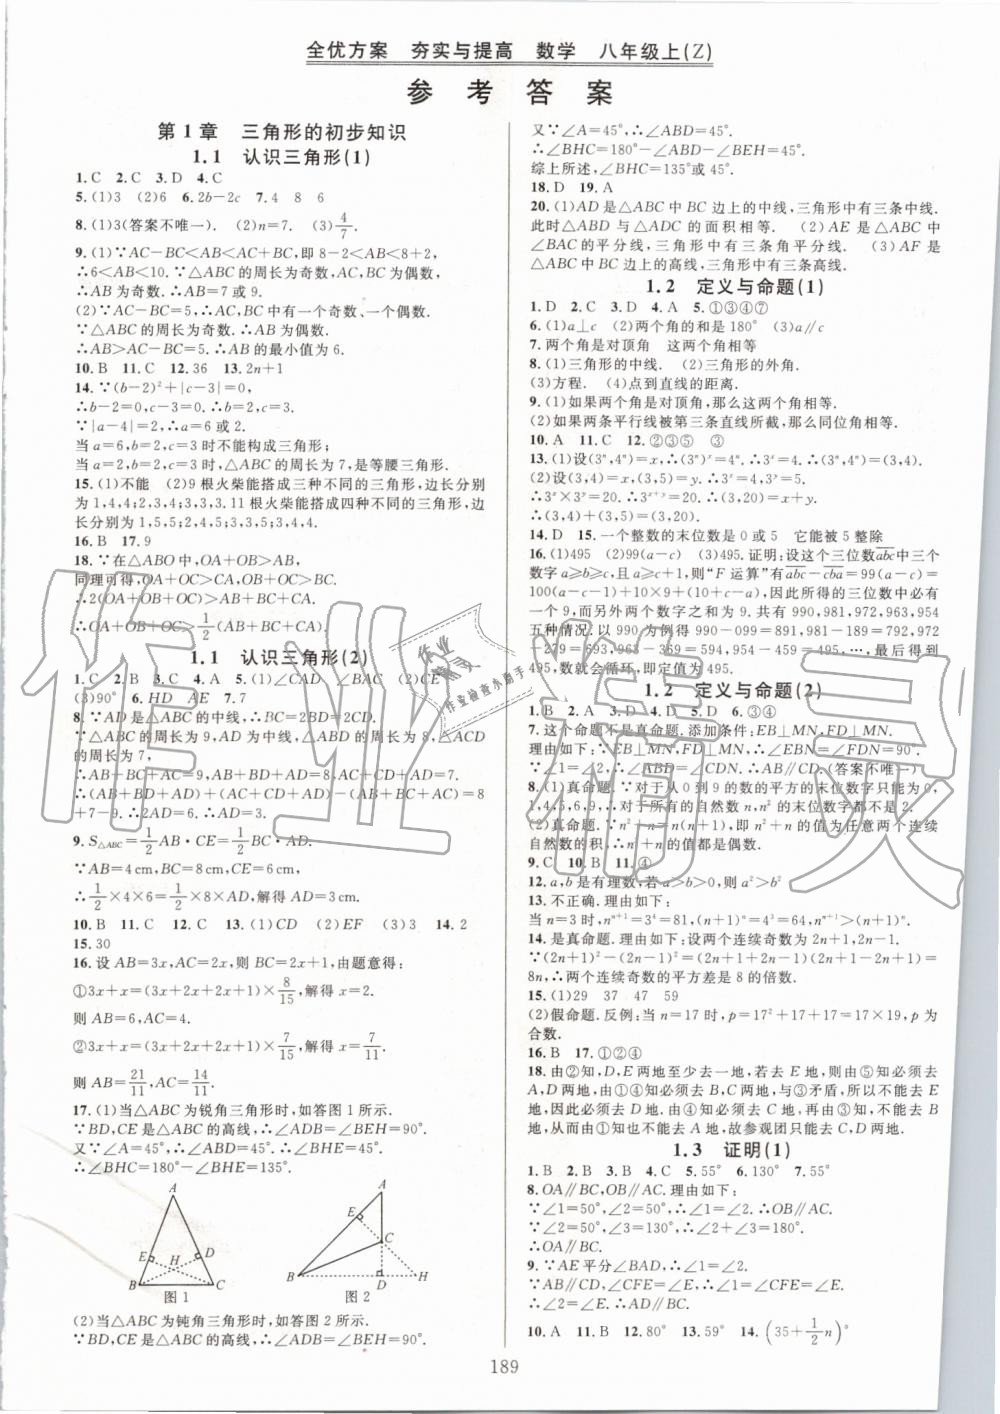 全优方案 夯实与提高 数学 八年级上(Z)
参 考 答 案
第1章 三角形的初步知识
1.1 认识三角形(1)
1.C 2.C 3.D 4.C
5.(1)3 (2)6 6.2b−2c 7.4 8 6
8.(1)3(答案不唯一). (2)n=7. (3)4/7.
9.(1)∵AC−BC<AB<AC+BC,即8−2<AB<8+2,
∴6<AB<10.∵△ABC的周长为奇数,AC,BC为偶数,
∴AB为奇数.∴AB=7或9.
(2)∵AC−BC=5,∴AC,BC中有一个奇数、一个偶数.
∵△ABC的周长为奇数,∴AB为偶数.
∴AB>AC−BC=5.∴AB的最小值为6.
10.B 11.C 12.36 13.2n+1
14.∵(b−2)²+|c−3|=0,
∴b−2=0,c−3=0.∴b=2,c=3.
∵|a−4|=2.∴a=6或2.
当a=6,b=2,c=3时不能构成三角形;
当a=2,b=2,c=3时,△ABC的周长为7,是等腰三角形.
15.(1)不能 (2)9根火柴能搭成三种不同的三角形,边长分别
为1,4,4;2,3,4;3,3,3.11根火柴能搭成四种不同的三角形,
边长分别为1,5,5;2,4,5;3,3,5;3,4,4.
16.B 17.9
18.∵在△ABO中,OA+OB>AB,
同理可得,OA+OC>CA,OB+OC>BC.
∴2(OA+OB+OC)>AB+BC+CA.
∴OA+OB+OC>1/2(AB+BC+CA).
1.1 认识三角形(2)
1.C 2.B 3.C 4.A 5.(1)∠CAD ∠CAB (2)CE
(3)90° 6.HD AE 7.7
8.∵AD是△ABC的中线,∴BC=2BD=2CD.
∵△ABC的周长为9,AD为中线,△ABD的周长为8,△ACD
的周长为7,
∴AB+BC+AC=9,AB+BD+AD=8,AC+CD+AD=7.
∴(AB+BD+AD)+(AC+CD+AD)−(AB+BC+AC)=8
+7−9.∴2AD=6.∴AD=3.
9.S△ABC=1/2AB·CE=1/2BC·AD.
∵AB=4cm,BC=8cm,CE=6cm,
∴1/2×4×6=1/2×8×AD,解得AD=3cm.
10.B 11.C 12.C 13.(1)CD (2)EF (3)3 14.2
15.30
16.设AB=3x,AC=2x,则BC=2x+1,由题意得:
①3x+x=(3x+2x+2x+1)×8/15,解得x=2.
则AB=6,AC=4.
②3x+x=(3x+2x+2x+1)×7/15,解得x=7/11.
则AB=21/11,AC=14/11.
17.(1)当△ABC为锐角三角形时,如答图1所示.
∵BD,CE是△ABC的高线,∴∠ADB=∠BEH=90°.
又∵∠A=45°,∴∠ABD=45°.
∴∠BHC=180°−∠BHE=135°.
A E H D B C
图1
A C B D H
图2
(2)当△ABC为钝角三角形时,如答图2所示.
∵BD,CE是△ABC的高线,∴∠ADB=∠BEH=90°.
又∵∠A=45°,∴∠ABD=45°.
∴∠BHC=180°−∠ABD−∠BEH=45°.
综上所述,∠BHC=135°或45°.
18.D 19.A
20.(1)AD是△ABC中BC边上的中线,三角形中有三条中线.
此时△ABD与△ADC的面积相等. (2)AE是△ABC中
∠BAC的平分线,三角形中有三条角平分线. (3)AF是
△ABC中BC边上的高线,三角形中有三条高线.
1.2 定义与命题(1)
1.D 2.C 3.D 4.A 5.①③④⑦
6.(1)a⊥c (2)两个角的和是180° (3)a∥c
7.两个角是对顶角 这两个角相等
8.(1)三角形的中线. (2)三角形的外角.
(3)方程. (4)点到直线的距离.
9.(1)如果两个角是对顶角,那么这两个角相等.
(2)如果两条平行线被第三条直线所截,那么同位角相等.
10.A 11.C 12.②③⑤ ③
13.(1)设(3ⁿ,4ⁿ)=x,∴(3ⁿ)ˣ=4ⁿ.∴3ˣ=4.∴(3ⁿ,4ⁿ)=(3,4).
(2)设(3,4)=x,(3,5)=y.∴3ˣ=4,3ʸ=5.
∴3ˣ×3ʸ=20.∴3ˣ⁺ʸ=20.∴(3,20)=x+y.
∴(3,4)+(3,5)=(3,20).
14.D 15.一个整数的末位数是0或5 它能被5整除
16.(1)495 (2)99(a−c) (3)495.证明:设这个三位数abc中三个
数字a≥b≥c,且a≥c+1,则“F运算”有abc−cba=99(a−c)=
100(a−c−1)+10×9+(10+c−a),因此所得的三位数中必有
一个9,而另外两个数字之和为9.共有990,981,972,963,954
五种情况.以990为例得到990−099=891,981−189=792,972−
279=693,963−369=594,954−459=495,…,最后得到
495,数就会循环,即定值为495.
1.2 定义与命题(2)
1.B 2.A 3.D 4.D 5.D 6.③④
7.这个命题不是真命题.添加条件:EB⊥MN,FD⊥MN.
理由如下:∵EB⊥MN,FD⊥MN,∴∠EBN=∠FDN=90°.
∵∠1=∠2,∴∠ABD=∠CDN.∴AB∥CD.(答案不唯一)
8.(1)真命题.∵对于从0到9的数的平方的末位数字只能为0,
1,4,5,6,9,∴对于所有的自然数n,n²的末位数字都不是2.
(2)真命题.∵n²+n=n(n+1),即n²+n的值为任意两个连续
自然数的积,∴n²+n的值都是偶数.
9.C 10.B 11.④
12.a,b是有理数,若a>b>0,则a²>b²
13.不正确.理由如下:
当n=3时,nⁿ⁺¹=3⁴=81,(n+1)ⁿ=4³=64,nⁿ⁺¹>(n+1)ⁿ.
14.是真命题.理由如下:设两个连续奇数为2n+1,2n−1.
∵(2n+1)²−(2n−1)²=(2n+1+2n−1)(2n+1−2n+1)=
8n,∴两个连续奇数的平方差是8的倍数.
15.(1)29 37 47 59
(2)假命题.反例:当n=17时,p=17²+17+17=17×19,p为
合数.
16.B 17.①②④
18.由②知,D,E两地至少去一地,若去E地,则由⑤知必须去
A,D两地,由①④知必须去B,C两地,与③矛盾,所以不能去E
地,因此必须去D地.由④知必须去C地,再由③知,不能去B
地,从而由①知也不能去A地,故参观团只能去C,D两地.
1.3 证明(1)
1.B 2.B 3.B 4.C 5.55° 6.130° 7.55°
8.OA∥BC,OB∥AC.理由如下:
∵∠1=50°,∠2=50°,∴∠1=∠2.∴OB∥AC.
∵∠2=50°,∠3=130°,∴∠2+∠3=180°.
∴OA∥BC.
9.∵AE平分∠BAD,∴∠1=∠2.
∵AB∥CD,∠CFE=∠E,∴∠1=∠CFE=∠E.
∴∠2=∠E.∴AD∥BC.
10.A 11.B 12.80° 13.59° 14.(35+1/2n)°
189
作业精灵
作业精灵
作业检查小助手